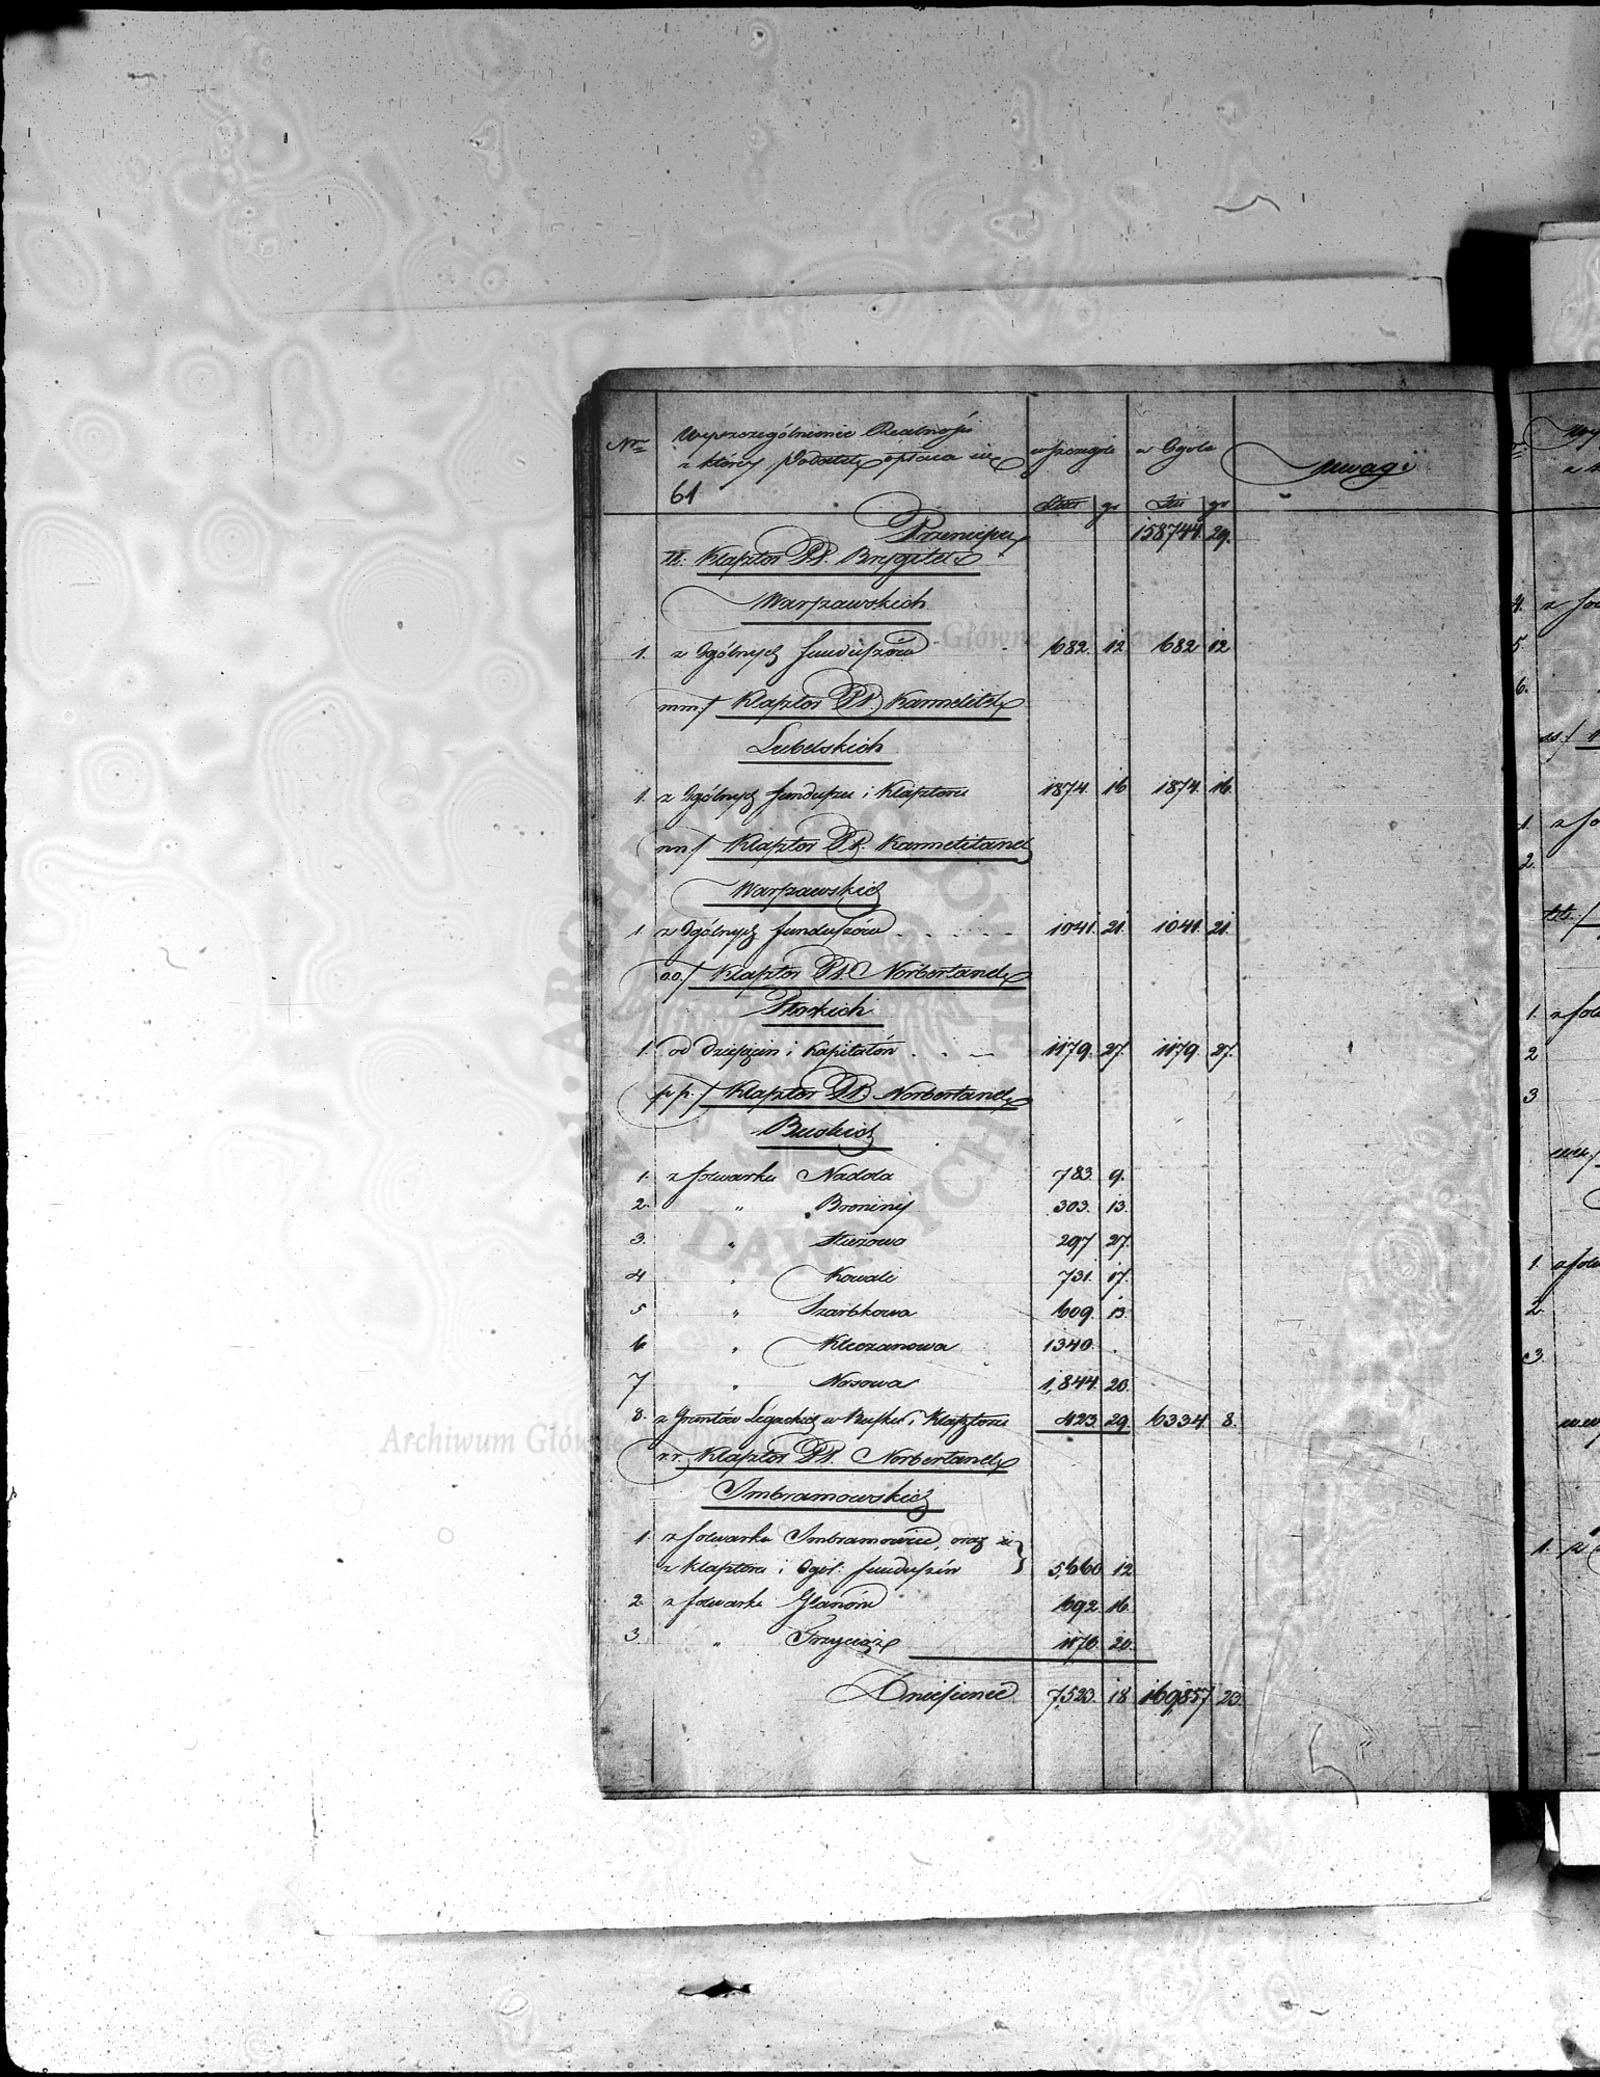 Nro Wyszczególnienie Realnośći w szczególe w Ogóle Uwagi
z którey Podatek opłaca się
61 Złł gr Złł gr
Przeniesienie 158744 29.
ll. Klasztor PP. Brygitek
Warszawskich
1. z Ogólnych funduszów 682. 12 682 12
mm./ Klasztor PP. Karmelitek
Lubelskich
1. z Ogólnych funduszu i Klasztoru 1874. 16 1874. 16.
nn./ Klasztor PP. Karmelitanek
Warszawskich
1. z Ogólnych funduszów 1041. 21. 1041. 21.
oo./ Klasztor PP. Norbertanek
Płockich
1. od Dziesięcin i Kapitałów 1179. 27. 1179. 27.
pp./ Klasztor PP. Norbertanek
Buskich
1. z folwarku Nadola 783. 9.
2. " Broniny 303. 13.
3. " 297 27.
4 " Kowali 731. 17.
5 " Szarbkowa 609. 13.
6 " Kleczanowa 1340. .
7 " Nosowa 1,844. 20.
8. z Gruntów w Busku i Klasztoru 423. 29. 6334 8.
rr. Klasztor PP. Norbertanek
Imbramowskich
1. z folwarku Imbramowice, oraz
z Klasztoru i Ogól. funduszów 5,660 12
2. z folwarku Glanów 692. 16.
3. " Trzyciąż 1170. 20.
Zniesienie 7,523. 18 169,857 23.
Archiwum Główne Akt Dawnych